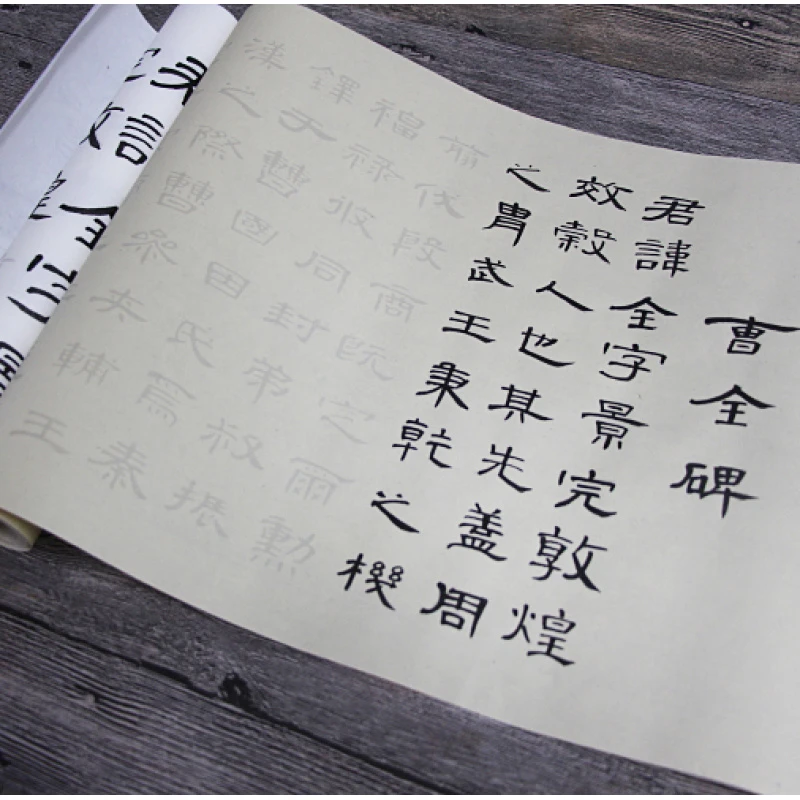 曹全碑
君諱全字景完敦煌
效穀人也其先蓋周
之胄武王秉乾之機
翦伐殷商既定爾勳
福祿攸同封弟叔振
鐸于曹國因氏焉秦
漢之際曹參夾輔王